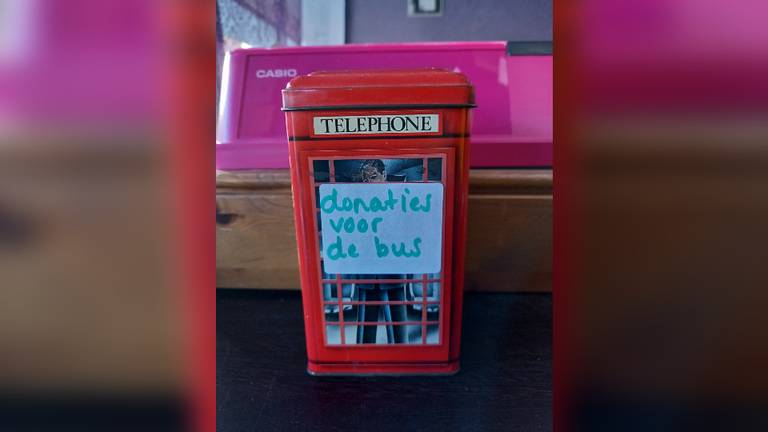 CASIO
TELEPHONE
donaties
voor
de bus